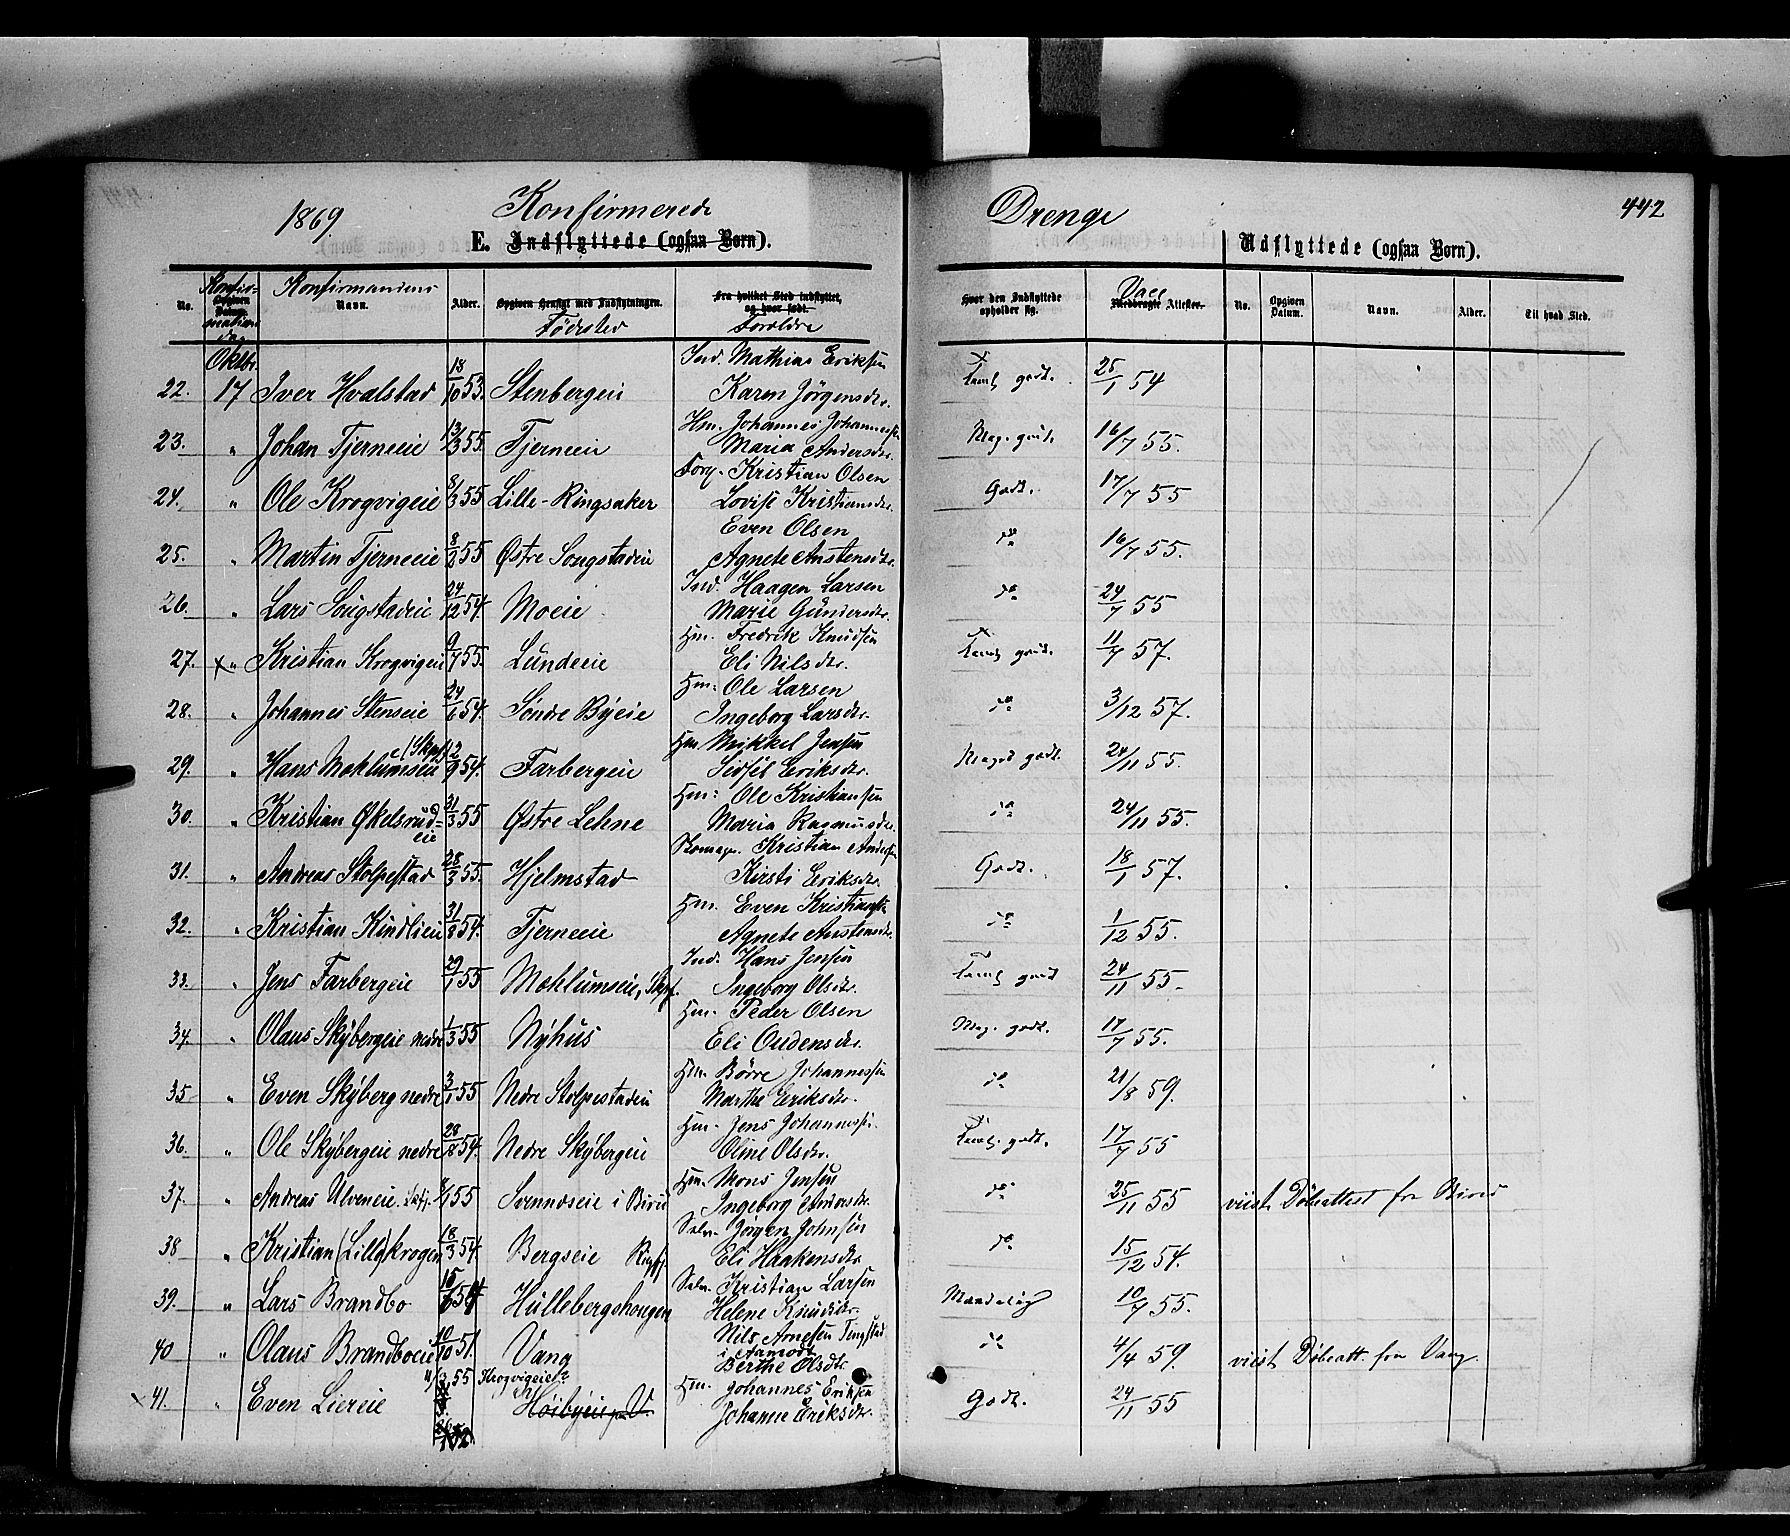 1869 Konfirmerede Drenge 442
E. Indflyttede (ogsaa Børn). Udflyttede (ogsaa Børn).
No. Konfirmations dag Opgiven Datum. Konfirmandens Navn. Alder. Opgiven Hensigt med Indflytningen. Fødested fra hvilket Sted indflyttet, og hvor født. Forældre Hvor den Indflyttede opholder sig. Vacc Medbragte Attester. No. Opgiven Datum. Navn. Alder. Til hvad Sted.
Oktbr. Ind. Mathias Eriksen
22. 17 Iver Hvalstad 18/10 53. Stenbergeie Karen Jørgensdr. Teml godt. 25/1 54
Hm. Johannes Johannessen
23. " Johan Tjerneeie 13/3 55. Tjerneeie Maria Andersdr. Meg. godt. 16/7 55.
Forp. Kristian Olsen
24. " Ole Krogvigeie 8/3 55 Lille-Ringsaker Lovise Kristiansdr. Godt. 17/7 55
Even Olsen
25. " Martin Tjerneeie 8/2 55 Østre Sougstadeie Agnete Anstensdr. do 16/7 55.
Ind. Haagen Larsen
26. " Lars Sougstadeie 24/12 54. Moeie Marie Gundersdr. do 24/7 55
Hm. Fredrik Knudsen
27. x " Kristian Krogvigeie 9/7 55. Lundeeie Eli Nilsdr. Teml godt. 11/7 57.
Hm. Ole Larsen
28. " Johannes Stenseie 24/6 54. Søndre Byeie Ingeborg Larsdr. do 3/12 57.
Hm Mikkel Jensen
29. " Hans Mohlumseie (Skpf) 12/9 54. Farbergeie Sidsel Eriksdr. Meget godt. 24/11 55.
Hm. Ole Kristiansen
30. " Kristian Økelsrud=eie 31/3 55 Østre Lehne Maria Rasmusdr. do 24/11 55.
Kristian Andersen
31. " Andreas Stolpestad 28/3 55. Hjelmstad Kirsti Eriksdr. Godt. 18/1 57.
Hm. Even Kristiansen
32. " Kristian Kindlieie 31/8 54. Tjerneeie Agnete Anstensdr. do 1/12 55.
Ind. Hans Jensen
33. " Jens Farbergeie 29/1 55 Mohlumseie, Skpf. Ingeborg Olsdr. Teml godt 24/11 55.
Hm. Peder Olsen
34. " Olaus Skybergeie nedre 1/3 55 Nyhus Eli Oudensdr. Meg. godt. 17/7 55.
Hm. Børre Johannessen
35 " Even Skyberg nedre 3/1 55 Nedre Stolpestadeie Marthe Eriksdr. do 21/8 59.
Hm. Jens Johannessen
36. " Ole Skybergeie nedre 28/8 54. Nedre Skybergeie Oline Olsdr. Teml. godt. 17/7 55
Hm. Mons Jensen
37. " Andreas Ulveneie 55 Svennæseie i Birid Ingeborg Andersdr. do 25/11 55 viist Døbeattest fra Birid
Selv. Jørgen Johnsen
38 " Kristian (Lille)krogen 18/3 54. Bergseie Rigsp. Eli Haakensdr do 15/12 54.
Selv. Kristian Larsen
39. " Lars Brandbo 15/6 54 Hullebergshougen Helene Knudsdr. Maadelig 10/7 55.
Nils Arnesen Tingstad
40 " Olaus Brandboeie 10/10 51. Vang i Aamodt Berthe Olsdtr. do 4/4 59. viist Døbeatt. fra Vang.
3/11 55 Krogvigeie Hm. Johannes Eriksen
x 41. " Even Liereie Høibyeie Johanne Eriksdr. Godt. 24/11 55